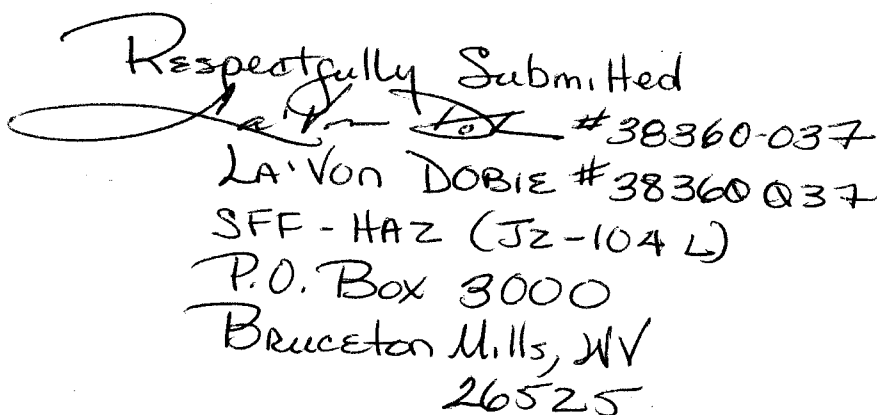 Respectfully Submitted
La'Von Do #38360-037
LA'VON DOBIE #38360037
SFF-HAZ (J2-104 L)
P.O. Box 3000
Bruceton Mills, WV
26525